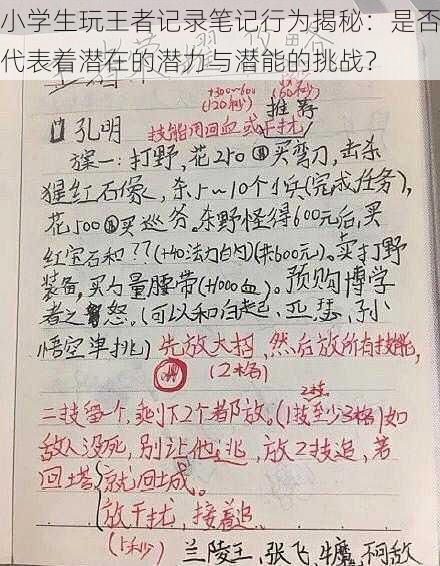 小学生玩王者记录笔记行为揭秘：是否
代表着潜在的潜力与潜能的挑战？
+300~600
(+20秒) 推荐 (50秒)
孔明 技能用回血或干扰
方案一：打野，花250买弯刀，击杀
猩红石像，杀5～10个小兵(完成任务)，
花500买巡务。杀野怪得600元后，买
红宝石和??(+40法力白内)(共600元)。买打野
装备，买力量腰带(+1000血)。预购博学
者之怒。(可以和白起、亚瑟、孙
悟空单挑)先放大招，然后放所有技能，
(2格)
2技
二技留一个，剩下2个都放。(1技至少3格)如
敌人没死，别让他逃，放2技追，若
回塔就回城。
放干扰，接着追。
(上秒) 兰陵王、张飞、牛魔、阿敌